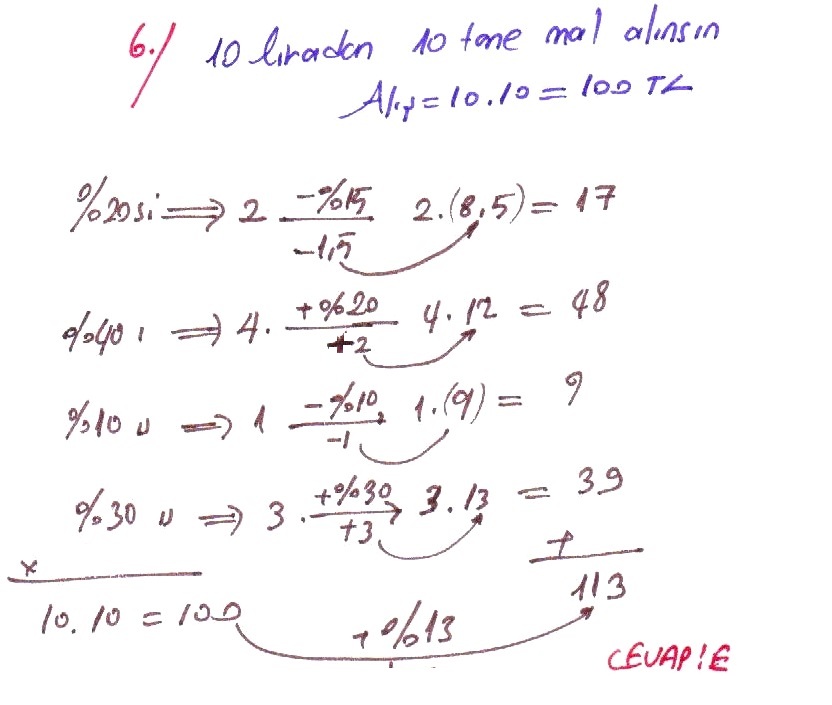 6.) 10 liradan 10 tane mal alınsın
Alış=10.10=100 TL
%20si ⟹ 2 -%15 2.(8,5)= 17
-1,5
%40ı ⟹ 4. +%20 4.12 = 48
+2
%10 u ⟹ 1 -%10 1.(9) = 9
-1
%30 u ⟹ 3. +%30 3.13 = 39
+3
x +
10.10 = 100 +%13 113
CEVAP:E